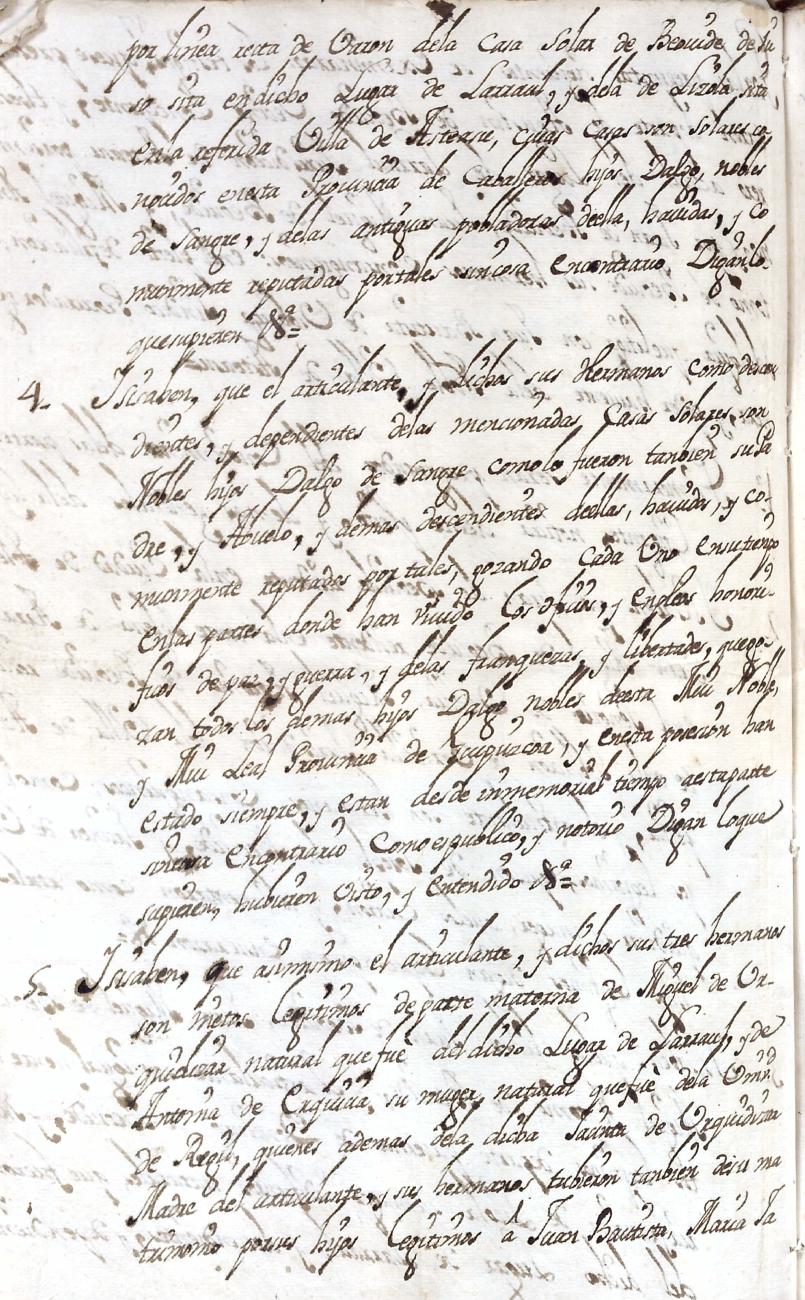 por linea recta de Varon dela Casa Solar de Beovide de su
so sita en dicho Lugar de Larraul, y dela de Lizola sita
en la referida Villa de Asteasu, cuias Casas son Solares co
nocidos enesta Provincia de Caballeros hijos Dalgo, nobles
de Sangre, y delas antiguas pobladoras deella, havidas, y co
munmente reputadas portales sincosa encontrario Digan lo
quesupieren &ª=
4- Isisaben, que el articulante, y dichos sus Hermanos como descen
dientes, y dependientes delas mencionadas Casas Solares, son
Nobles hijos Dalgo de Sangre como lo fueron tanbien su Pa
dre, y Abuelo, y demas descendientes deellas, havidos, y co-
munmente reputados por tales, gozando Cada Uno ensutiempo
enlas partes donde han vivido los ofiçios, y enpleos honori-
ficos de paz, y guerra, y delas franquezas, y libertades, quego-
zan todos los demas hijos Dalgo nobles deesta Mui Noble,
y Mui Leal Provincia de Guipuzcoa, y enesta posesion han
estado siempre, y estan desde inmemorial tiempo aestaparte
sincosa encontrario Comoespublico, y notorio Digan loque
supieren, hubieren Visto, y entendido &ª=
5- Isisaben, que asimismo el articulante, y dichos sus tres hermanos
son nietos legitimos departe materna de Miguel de Ur-
quidizar natural que fue del dicho Lugar de Larraul, y de
Antonia de Erquicia su muger natural quefuè dela Univd.
de Regil, quienes ademas dela dicha Jacinta de Urquidizar
Madre del articulante, y sus hermanos tubieron tanbien desu ma
trimonio porsus hijos legitimos à Juan Bautista, Maria Ja